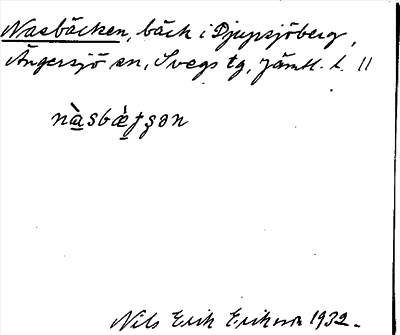 Nasbäcken, bäck i Djupsjöberg,
Ängersjö sn, Svegs tg, Jämtl. l. 11
nàsbæ̀tʂən
Nils Erik Erikson 1932.